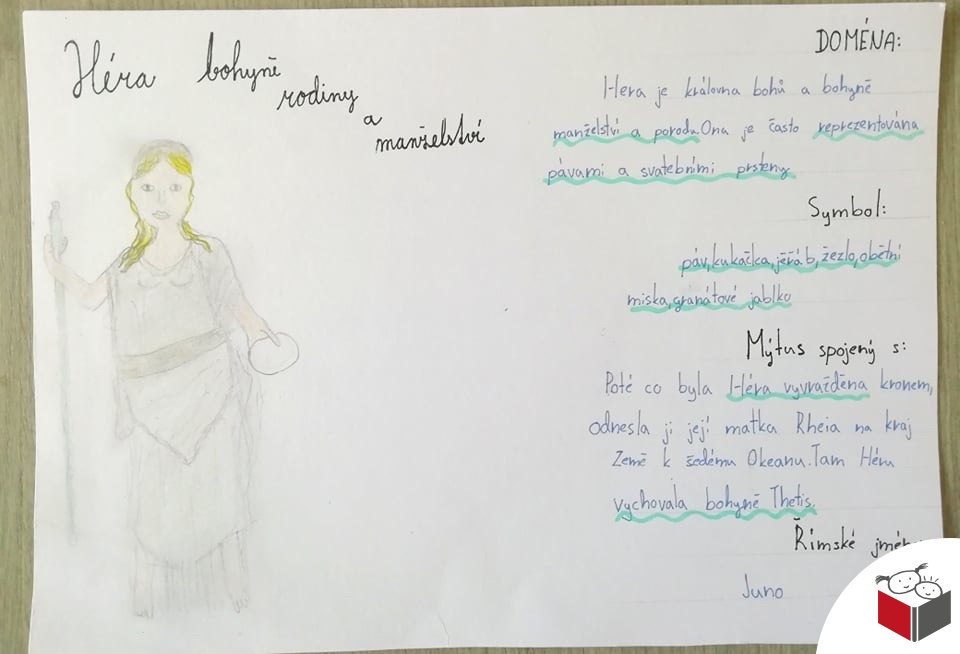 Héra bohyně
rodiny
a
manželství
DOMÉNA:
Hera je královna bohů a bohyně
manželství a porodu.Ona je často reprezentována
pávami a svatebními prsteny
Symbol:
páv,kukačka,jěřáb,žezlo,obětní
miska,granátové jablko
Mýtus spojený s:
Poté co byla Héra vyvražděna kronem,
odnesla ji její matka Rheia na kraj
Země k šedému Okeanu.Tam Héru
vychovala bohyně Thetis.
Římské
Juno